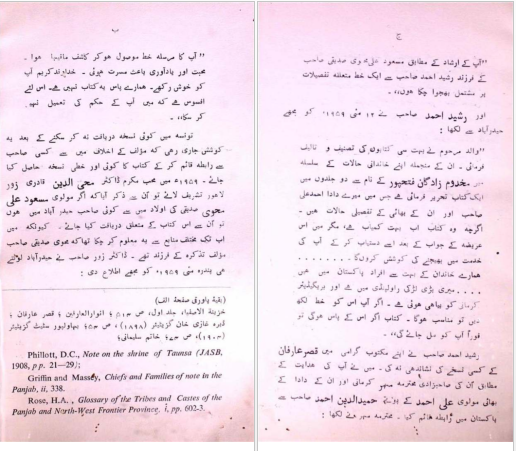 ب
”آپ کا مرسلہ خط موصول ہو کر کاشف مافیہا ہوا ۔
محبت اور یادآوری باعث مسرت ہوئی ۔ خداوند کریم آپ
کو خوش رکھے۔ ہمارے پاس یہ کتاب نہیں ہے۔ اس لئے
افسوس ہے کہ میں آپ کے حکم کی تعمیل نہیں
کر سکتا“۔
تونسہ میں کوئی نسخہ دریافت نہ کر سکنے کے بعد یہ
کوشش جاری رہی کہ مؤلف کے اخلاف میں سے کسی صاحب
سے رابطہ قائم کر کے کتاب کا کوئی اور خطی نسخہ حاصل کیا
جائے ۔ ۱۹۵۹ء میں جب مکرم ڈاکٹر محی الدین قادری زور
لاہور تشریف لائے تو ان سے ذکر آیا کہ اگر مولوی مسعود علی
محوی صدیقی کی اولاد میں سے کوئی صاحب حیدر آباد میں ہوں
تو ان سے اس کتاب کے متعلق دریافت کیا جائے ۔ کیونکہ میں
اب تک مختلف منابع سے یہ معلوم کر چکا تھا کہ محوی صدیقی صاحب
مؤلف تذکرہ کے فرزند تھے ۔ ڈاکٹر زور صاحب نے حیدرآباد لوٹتے
ہی پندرہ مئی ۱۹۵۹ء کو مجھے اطلاع دی :
(بقیہ پاورقی صفحۂ الف)
خزینۃ الاصفیا، جلد اول، ص ؛ انوارالعارفین ؛ قصر عارفان ؛
ڈیرہ غازی خان گزیٹیر (۱۸۹۸)، ص ؛ بہاولپور سٹیٹ گزیٹیر
، ص ؛ خاتم سلیمانی؛
Phillott, D.C., Note on the shrine of Taunsa (JASB,
1908, pp. 21—29);
Griffin and Massey, Chiefs and Families of note in the
Panjab, ii, 338.
Rose, H.A., Glossary of the Tribes and Castes of the
Panjab and North-West Frontier Province, i, pp. 602-3.
ج
”آپ کے ارشاد کے مطابق مسعود علی محوی صدیقی صاحب
کے فرزند رشید احمد صاحب سے ایک خط متعلقہ تفصیلات
پر مشتمل بھجوا چکا ہوں“۔
اور رشید احمد صاحب نے ۱۲ مئی ۱۹۵۹ء کو مجھے
حیدرآباد سے لکھا :
”والد مرحوم نے بہت سی کتابوں کی تصنیف و تالیف
فرمائی ۔ ان کے منجملہ اپنے خاندانی حالات کے سلسلہ
میں مخدوم زادگان فتحپور کے نام سے دو جلدوں میں
ایک کتاب تحریر فرمائی ہے جس میں میرے دادا احمد علی
صاحب اور ان کے بھائی کے تفصیلی حالات ہیں ۔
اگرچہ وہ کتاب اب بہت کمیاب ہے، مگر میں اس
عریضہ کے جواب کے بعد اسے دستیاب کر کے آپ کی
خدمت میں بھیجنے کی کوشش کروں گا . . . . . . . .
ہمارے خاندان کے بہت سے افراد پاکستان میں ہیں
. . . . میری بڑی لڑکی راولپنڈی میں ہے اور بریگیڈیئر
کرمانی کو بیاہی ہوئی ہے ۔ اگر آپ اس کو خط لکھ
تو مناسب ہوگا ۔ کتاب اگر اس کے پاس ہوگی تو
فوراً آپ کو مل جائے گی“۔
رشید احمد صاحب نے اپنے مکتوب گرامی میں قصر عارفان
کے کسی نسخے کی نشاندہی نہ کی ۔ میں نے آپ کی ہدایت کے
مطابق ان کی صاحبزادی محترمہ سپر کرمانی اور ان کے دادا کے
بھائی مولوی علی احمد کے پوتے حمیدالدین احمد صاحب سے
پاکستان میں رابطہ قائم کیا ۔ محترمہ نے لکھا :